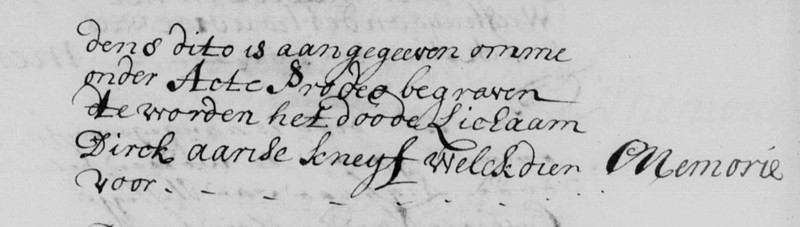 den 8 dito is aangegeeven omme
onder Acte Prodeo begraven
te worden het doode Lichaam
Dirck aarise kneyf Welck dien Memorie
voor . - - - - - - - -